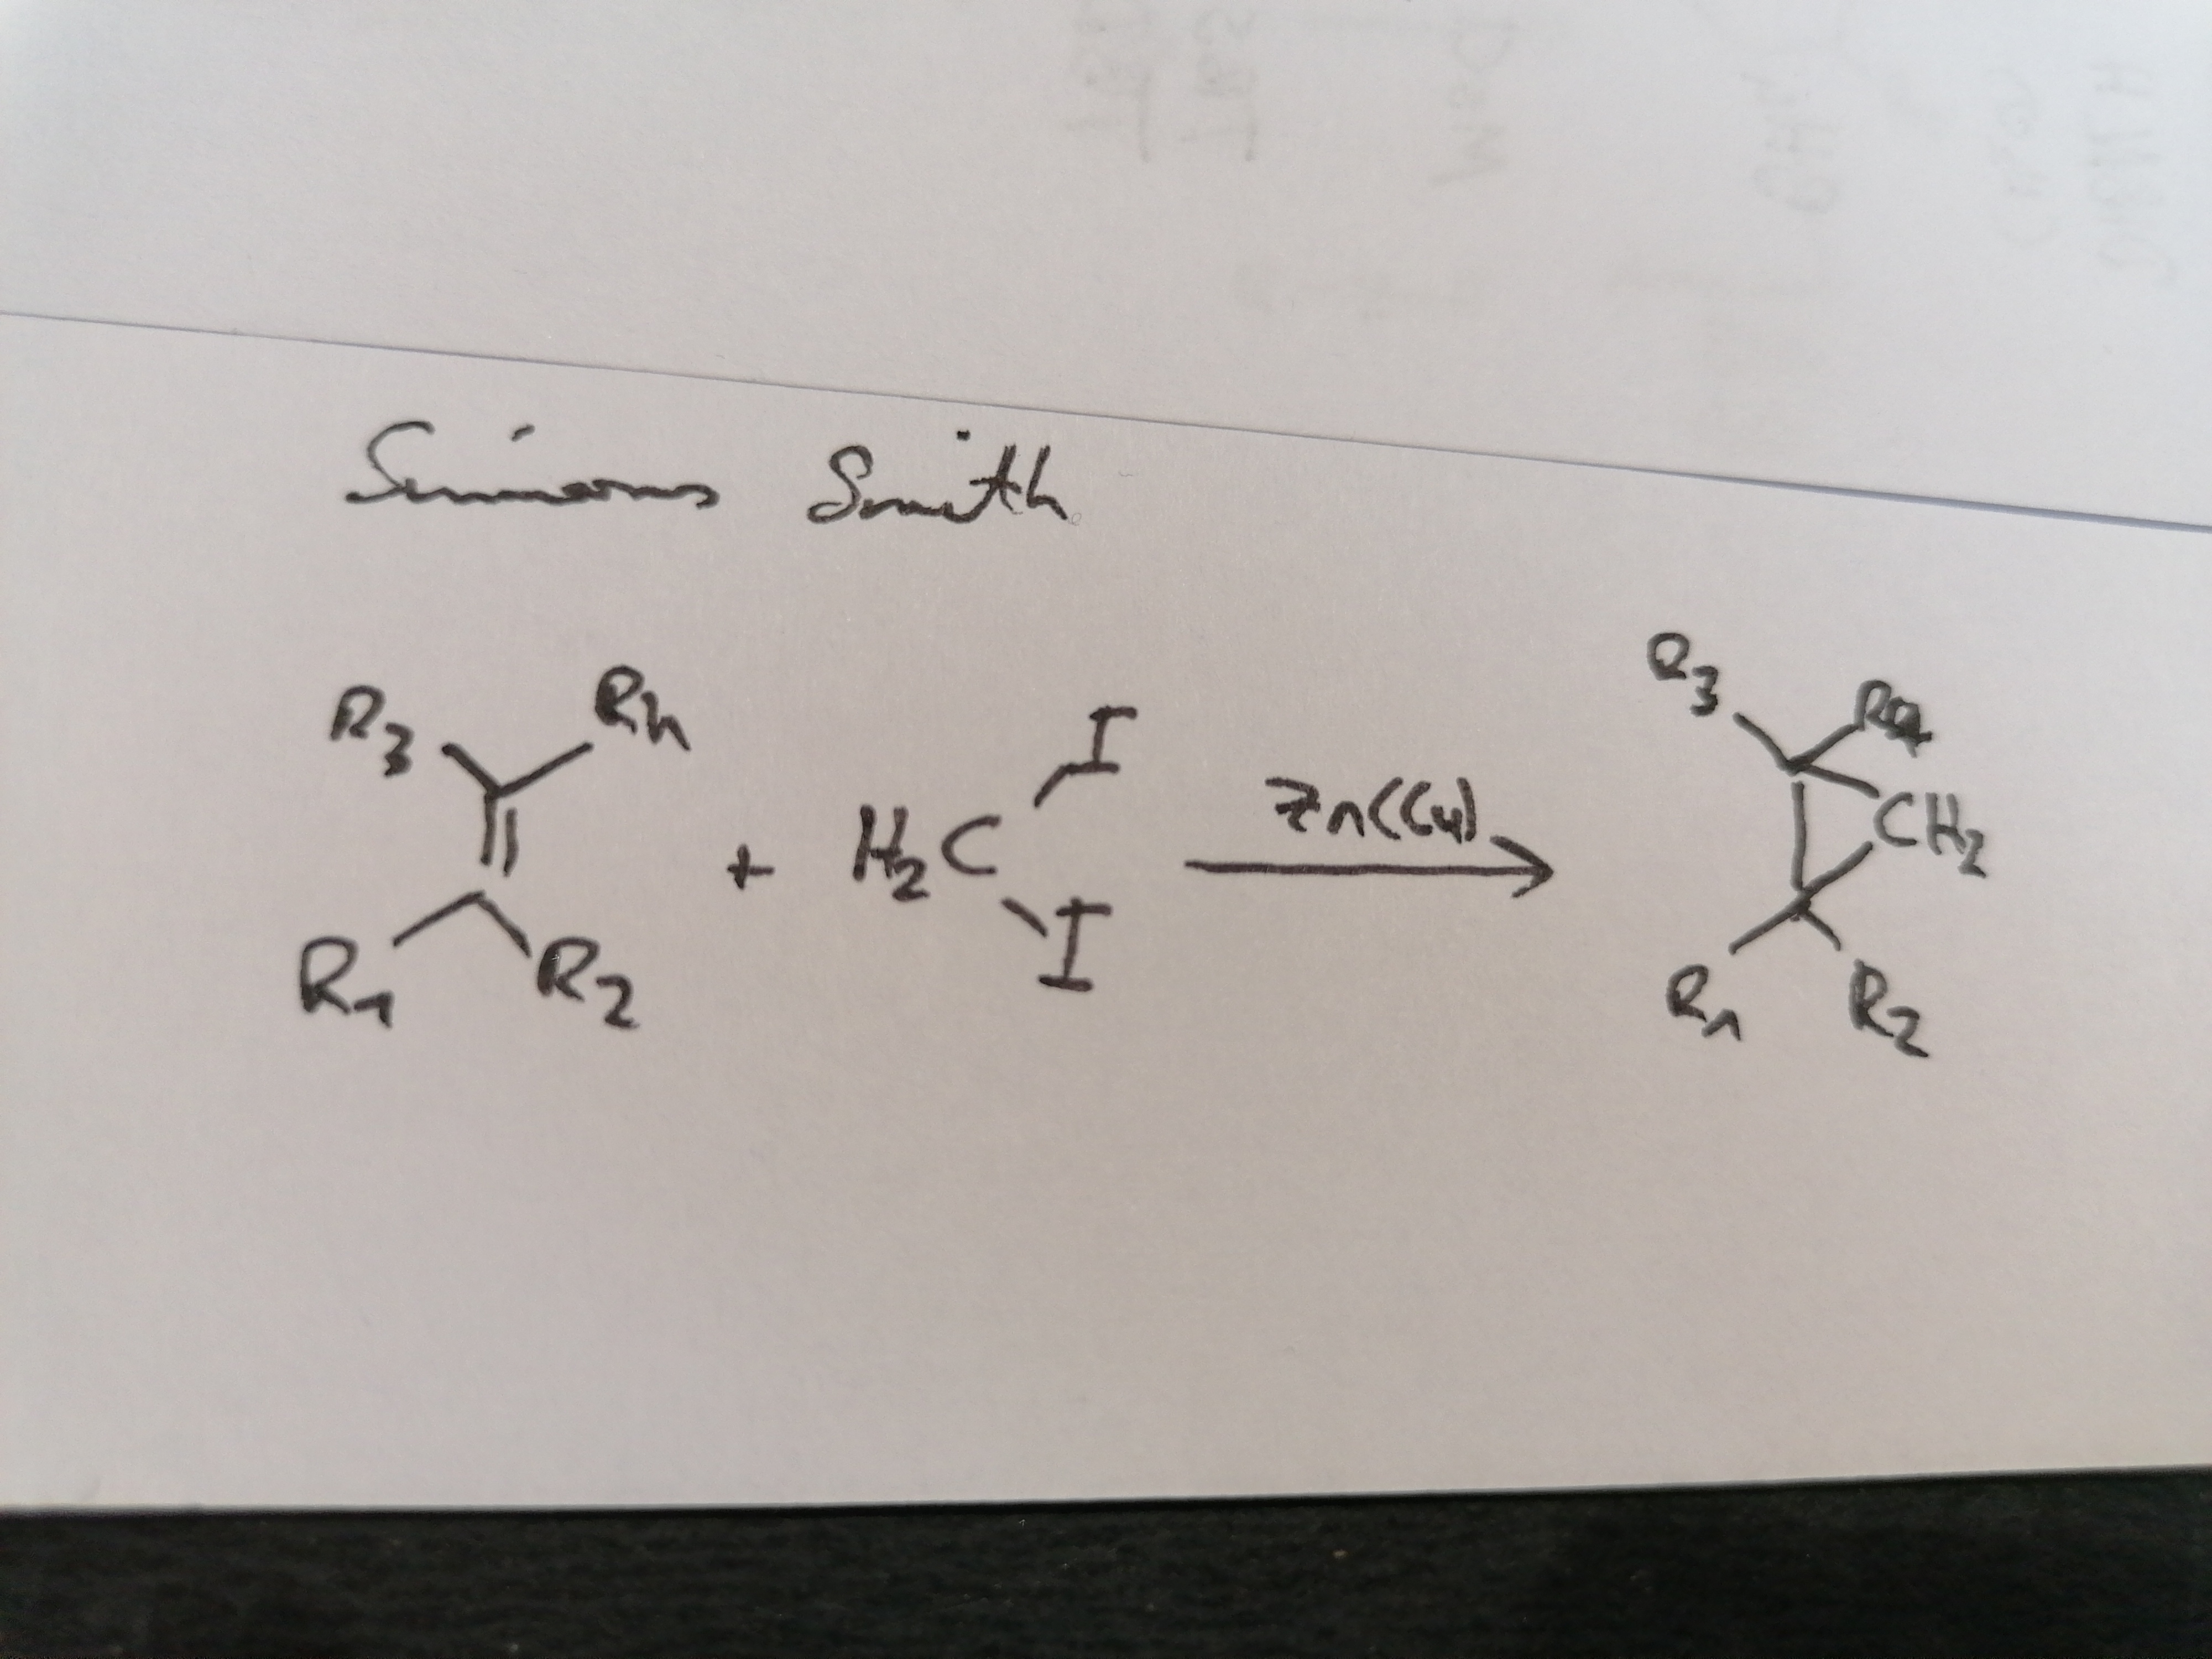 Simmons Smith
R3 R4
R1 R2
+
H2C I I
Zn(Cu)
R3 R4
CH2
R1 R2